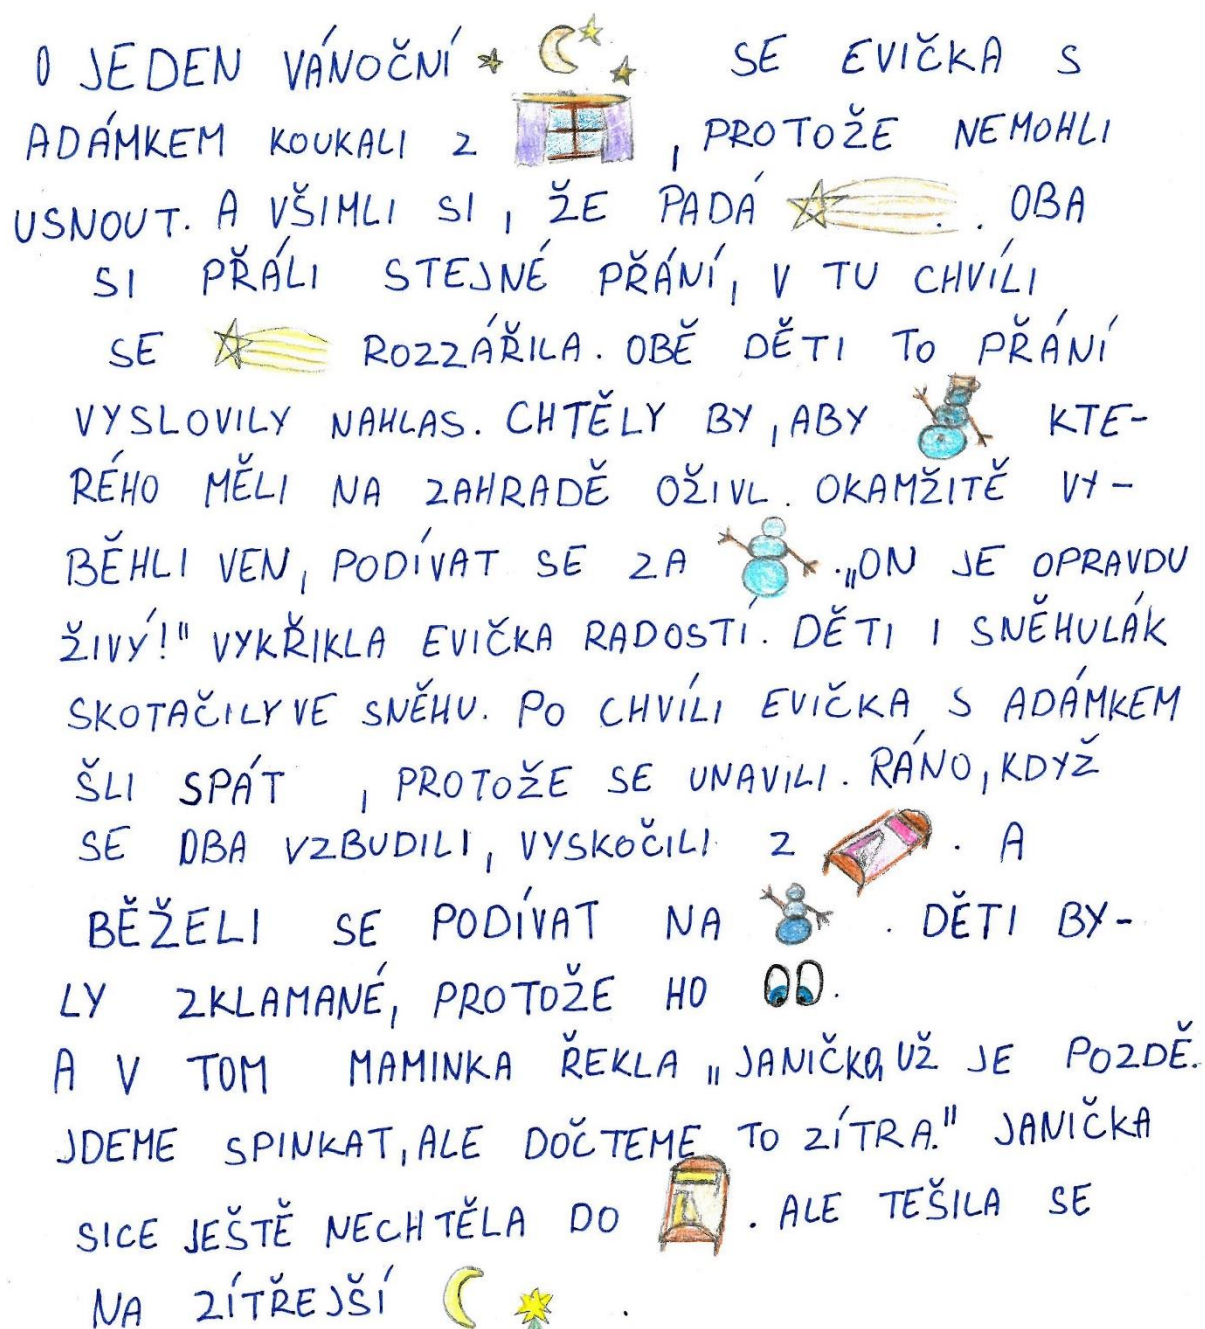 O JEDEN VÁNOČNÍ SE EVIČKA S
ADÁMKEM KOUKALI Z , PROTOŽE NEMOHLI
USNOUT. A VŠIMLI SI, ŽE PADÁ . OBA
SI PŘÁLI STEJNÉ PŘÁNÍ, V TU CHVÍLI
SE ROZZÁŘILA. OBĚ DĚTI TO PŘÁNÍ
VYSLOVILY NAHLAS. CHTĚLY BY, ABY KTE-
RÉHO MĚLI NA ZAHRADĚ OŽIVL. OKAMŽITĚ VY-
BĚHLI VEN, PODÍVAT SE ZA . „ON JE OPRAVDU
ŽIVÝ!" VYKŘIKLA EVIČKA RADOSTÍ. DĚTI I SNĚHULÁK
SKOTAČILY VE SNĚHU. PO CHVÍLI EVIČKA S ADÁMKEM
ŠLI SPÁT , PROTOŽE SE UNAVILI. RÁNO, KDYŽ
SE OBA VZBUDILI, VYSKOČILI Z . A
BĚŽELI SE PODÍVAT NA . DĚTI BY-
LY ZKLAMANÉ, PROTOŽE HO .
A V TOM MAMINKA ŘEKLA „JANIČKO, UŽ JE POZDĚ.
JDEME SPINKAT, ALE DOČTEME TO ZÍTRA." JANIČKA
SICE JEŠTĚ NECHTĚLA DO . ALE TEŠILA SE
NA ZÍTŘEJŠÍ .